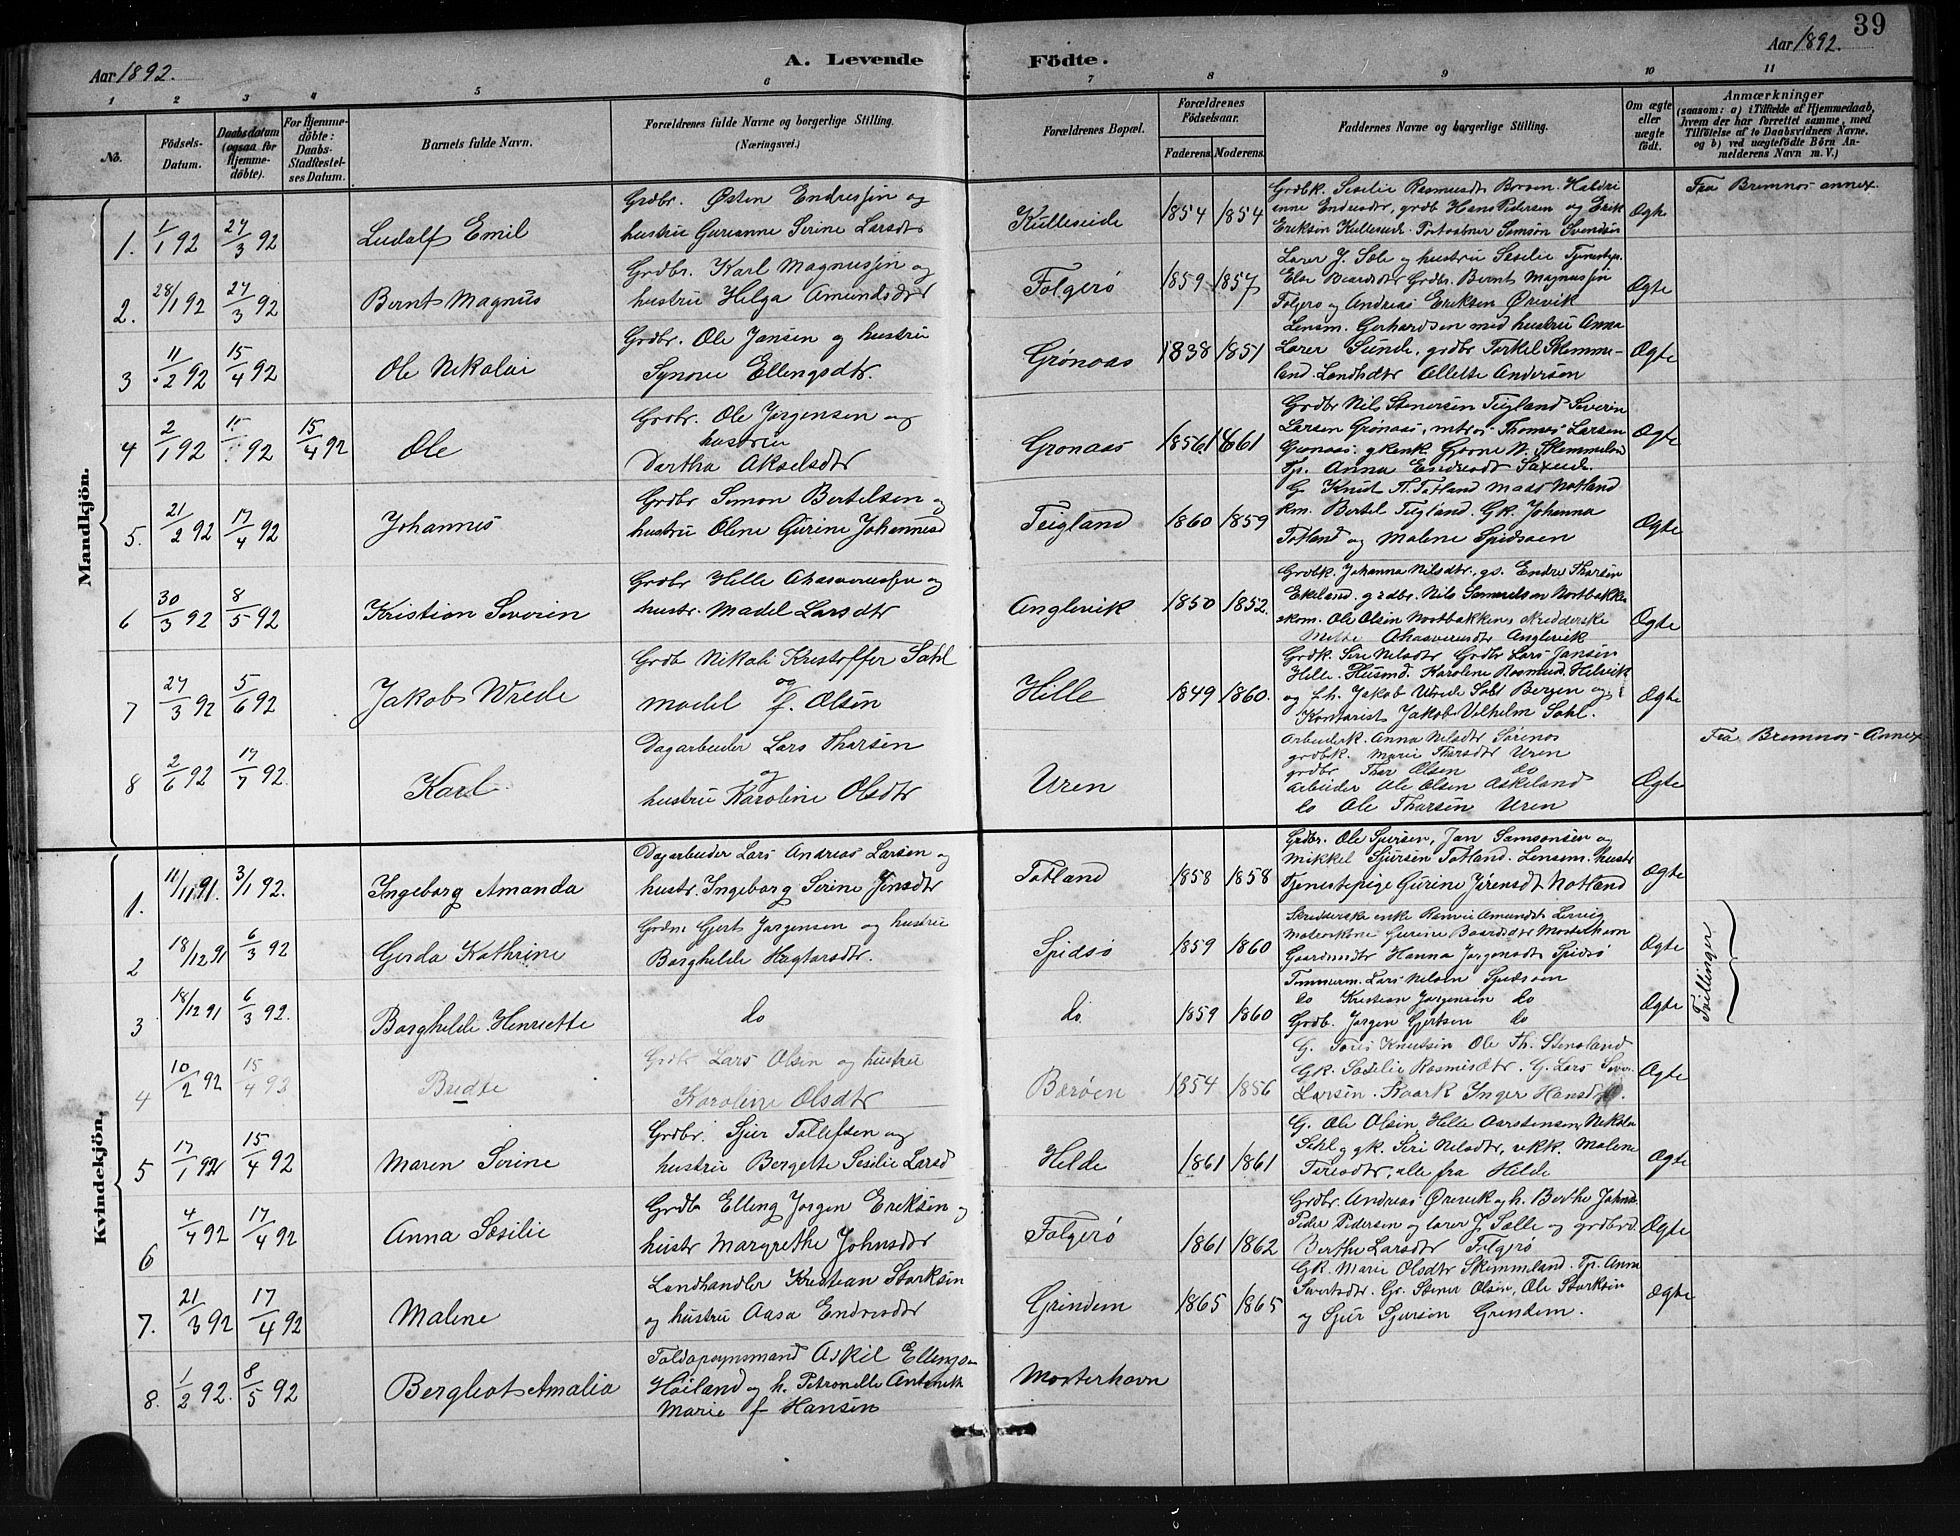 39
Aar 1892. A. Levende Födte. Aar 1892.
1 2 3 4 5 6 7 8 9 10 11
No.
Födsels-Datum.
Daabsdatum (ogsaa for Hjemmedöbte).
For Hjemmedöbte: Daabs-Stadfestelses Datum.
Barnets fulde Navn.
Forældrenes fulde Navne og borgerlige Stilling.
(Næringsvei.)
Forældrenes Bopæl.
Forældrenes Födselsaar.
Faderens. Moderens.
Faddernes Navne og borgerlige Stilling.
Om ægte eller uægte födt.
Anmærkninger
(saasom: a) i Tilfælde af Hjemmedaab,
hvem der har forrettet samme, med
Tilföielse af to Daabsvidners Navne.
og b) ved uægtefödte Börn An-
melderens Navn m. V.)
Mandkjön.
1. 1/1 92 27/3 92 Ludolf Emil
Grdbr. Østen Endressøn og
hustru Gurianne Serine Larsdtr
Kulleseide 1854 1854
Grdbk. Sesilie Rasmusdtr
Endresdtr, grdb Hans Pedersen og Erik
Eriksen Kulleseide Samson Svendsen
Ægte
Fra Bremnes annex.
2. 28/1 92 27/3 92 Bernt Magnus
Grdbr. Karl Magnussøn og
hustru Helga Amundsdtr
Folgerø 1859 1857
Lærer J. Sæle og hustru Sesilie
Grdbr. Bernt Magnussøn
Folgerø og Andreas Eriksen Ørevik
Ægte
3 11/2 92 15/4 92 Ole Nikolai
Grdbr. Ole Jansen og hustru
Synove Ellingsdtr.
Grønaas 1838 1851
Lensm. Gerhardsen med hustru Anna
Lærer Sunde, grdbr Torkel Skimme-
land. Landhdtr Ollette Andersen
Ægte
4 2/1 92 15/ 92 15/4 92 Ole
Grdbr. Ole Jørgensen og
hustru
Dortha Akselsdtr
Gronaas 1856 1861
Grdbr Nils Stenersen Teigland Severin
Larsen Grønaas, Thomas Larsen
Tp. Anna Endresdtr
Ægte
5. 21/2 92 17/4 92 Johannes
Grdbr Simon Bertelsen og
hustru Oline Gurine Johannesd
Teigland 1860 1859
G. Knut Totland Mads Notland
Bertel Teigland. Gk. Johanna
Totland og Malene Spidsøen
Ægte
6 30/3 92 8/5 92 Kristian Severin
Grdbr Hille Ahasverussøn og
hustr. Madel Larsdtr
Anglevik 1850 1852.
Grdbk. Johanna Nilsdtr, gs. Endre Tharsen
Ekeland. grdbr. Nils Samuelson Nortbakke
Ole Olsen Nortbakken, skredderske
Mette Ahasverusdtr Anglevik
Ægte
7 27/3 92 5/6 92 Jakob Wrede
Grdb Nikoli Kristoffer Sahl
og
Madel f. Olsen
Hille 1849 1860.
Grdk. Siri Nilsdtr Grdbr Lars Jansen
Hille. Husmd. Karoline Rasmusd Helvik
og Jakob Wrede Sahl Bergen og
Kontorist Jakob Vilhelm Sahl.
Ægte
8 2/6 92 17/7 92. Karl
Dagarbeider Lars Tharsen
og
hustru Karoline Olsdtr
Uren
Arbeiderk. Anna Nilsdtr
grdbk. Marie Tharsdtr Uren
grdbr Thor Olsen do
Arbeider Ole Olsen Askeland
do Ole Tharsen Uren
Ægte
Fra Bremnes Annex
Kvindekjön.
1. 11/11 91. 3/1 92. Ingeborg Amanda
Dagarbeider Lars Andreas Larsen og
hustr. Ingeborg Serine Jensdtr
Totland 1858 1858
Grdbr. Ole Sjursen, Jan Samsonsen og
Mikkel Sjursen Totland. Lensm. hustr
Tjenestepige Gurine Jørensdt Notland
Ægte
2 18/12 91 6/3 92 Gerda Kathrine
Gjert Jørgensen og hustru
Borghilde Hegtorsdtr.
Spidsø 1859 1860
Skredderske enke Amundsdt Lervig
Gurine Baardsdtr Mosterhavn
Hanna Jørgensdt Spidsø
Ægte
Tvillinger
3 18/12 91 6/3 92. Borghilde Henriette
do do 1859 1860
Tømmerm. Lars Nilsen Spidsøen
do Kristian Jørgensen do
Grdb. Jørgen Gjertsen do
Ægte
4 10/2 92 15/4 92 Bredte
Grdb Lars Olsen og hustru
Karoline Olsdtr
Borøen 1854 1856
G. Knutsen Ole Th. Stensland
Gk. Sæsilie Rasmusdtr. G. Lars
Larsen. Inger Hansdtr.
Ægte
5 17/1 92 15/4 92 Maren Serine
Grdbr. Sjur Tollefsen og
hustru Bergette Sesilie Larsd
Helde 1861 1861
G. Ole Olsen, Hille Aarstensen, Nikola
Sahl, gk. Siri Nilsdtr, Malene
alle fra Helde
Ægte
6 4/4 92 17/4 92 Anna Sæsilie
Grdb Elling Jørgen Eriksen og
hustr Margrethe Johnsdtr
Folgerø 1861 1862
Grdbr. Andreas Ørevik og h. Berthe
Peder Pedersen og lærer J. Sælle og
Berthe Larsdtr Folgerø
Ægte
7. 21/3 92 17/4 92 Malene
Landhandler Kristian Storksen
og hustru Aasa Endresdtr
Grindem 1865 1865
Gk. Marie Olsdtr Skimmeland. Tp. Anna
Sivertsdtr. Gr. Stener Olsen, Ole Storksen
og Sjur Sjursen Grindem.
Ægte
8. 1/2 92. 8/5 92 Bergliot Amalia
Toldopsynsmand Askil
Høiland og h. Petronelle
Marie f Hansen
Mosterhavn